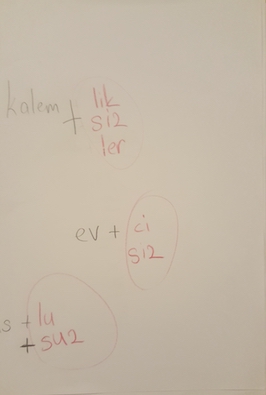 kalem + lik
siz
ler
ev + ci
siz
s + lu
+ suz